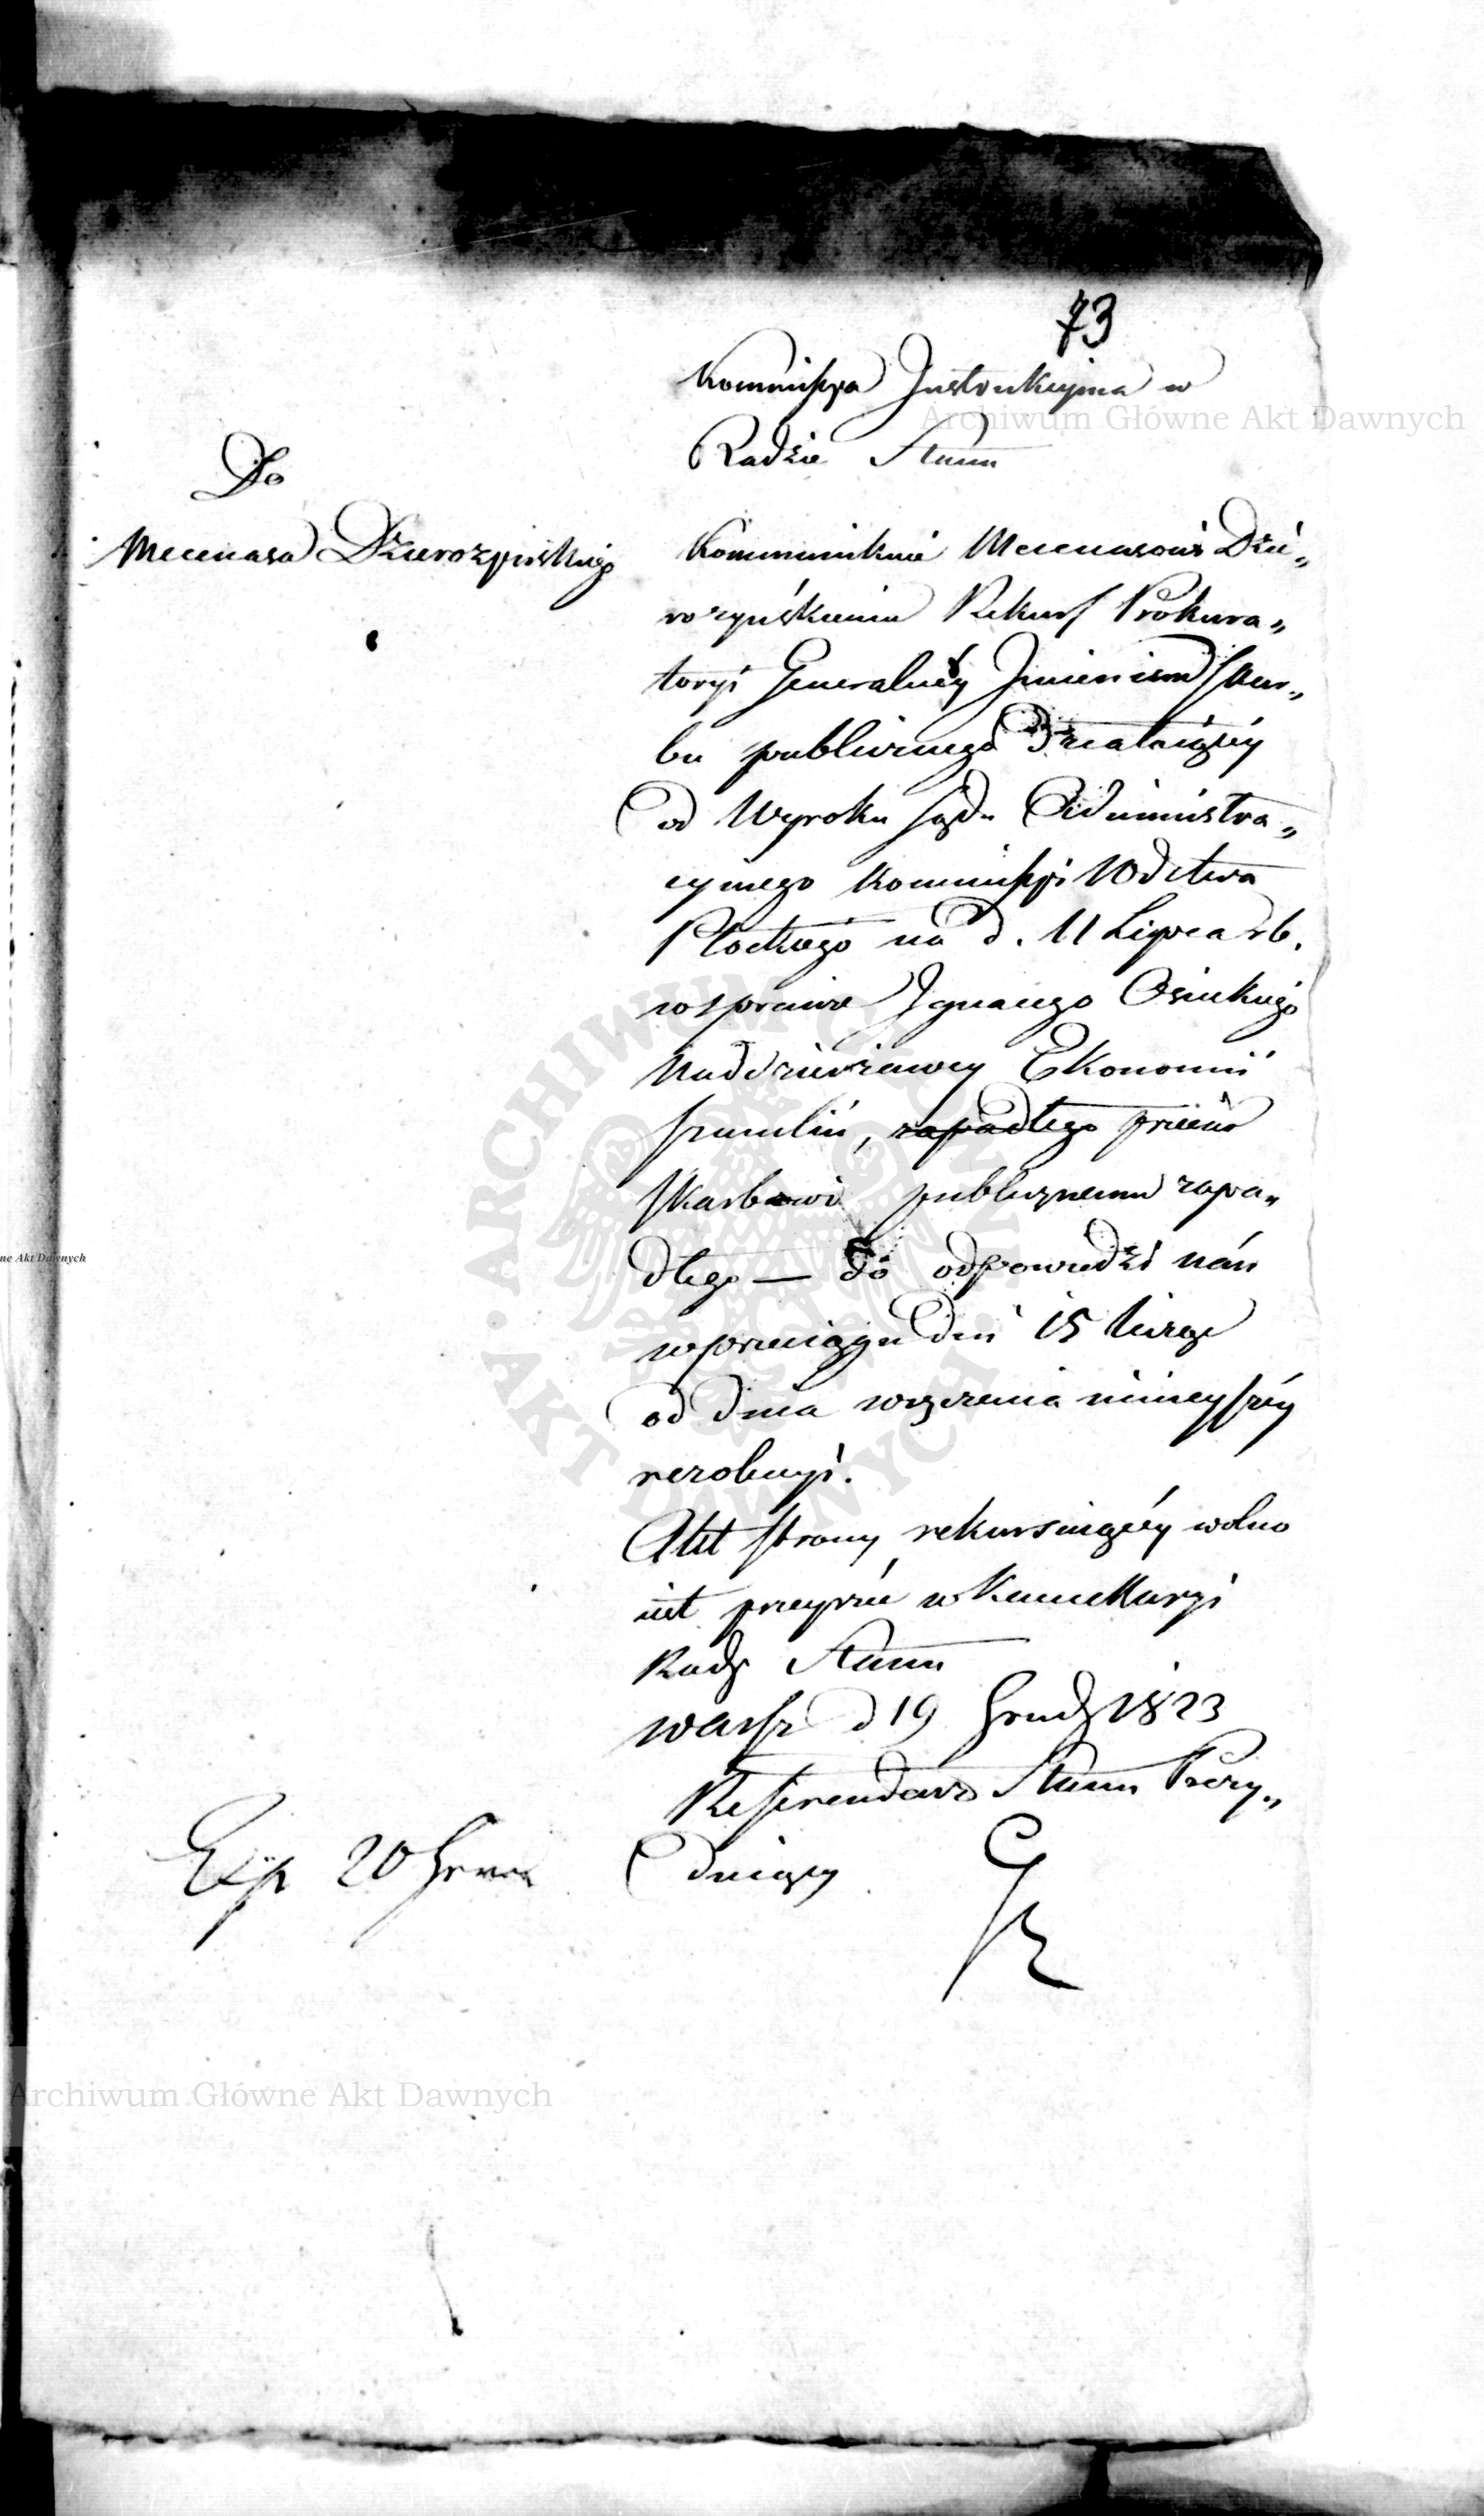 73
Kommissya Instrukcyina w
Radzie Stanu
Do
Mecenasa Dzierozyńskiego
Kommunikuie Mecenasowi Dzie„
rozyńskiemu Rekurs Prokura„
toryi Generalnéy Imieniem skar„
bu publicznego Działaiącéy
od Wyroku sądu Administra„
cyinego Kommissyi Wodztwa
Płockiego na d. 11 Lipca rb.
w sprawie Ignacego Osieckiego
Naddzierżawcy Ekonomii
szumlin, zapadłego przeciw
skarbowi publicznemu zapa„
dłego — do odpowiedzi nań
w przeciągu dni 15 licząc
od dnia wręczenia ninieyszéy
rezolucyi.
Akt strony rekursuiącéy wolno
iest przeyrzéć w Kancellaryi
Rady Stanu
warsz d 19 Grud 1823
Referendarz Stanu Prezy„
duiący
Exp 20 Grud
Archiwum Główne Akt Dawnych
ARCHIWUM GŁÓWNE · AKT DAWNYCH ·
ne Akt Dawnych
Archiwum Główne Akt Dawnych